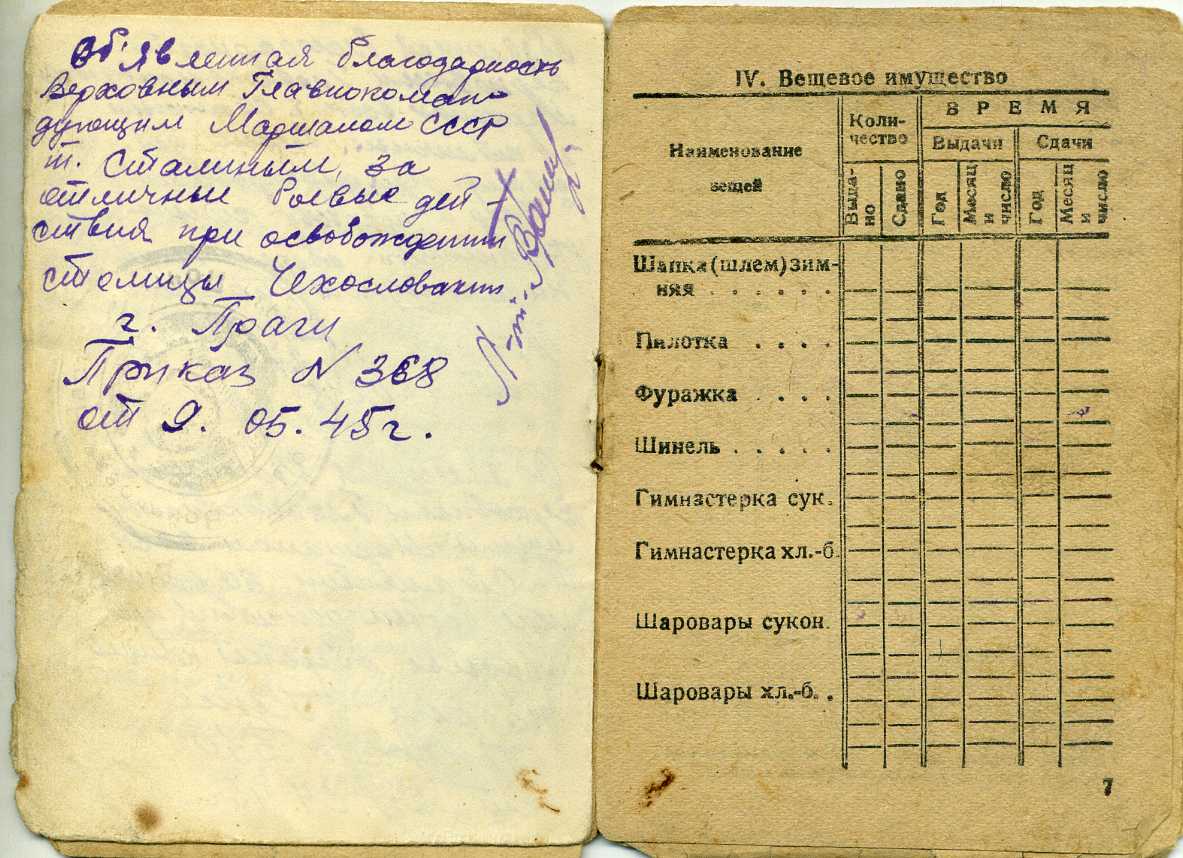 Объявленная благодарность
Верховным Главнокоман-
дующим Маршалом СССР
т. Сталиным, за
отличные боевые дей-
ствия при освобождении
столицы Чехословакии
г. Праги
Приказ N 368
от 9. 05. 45г.
IV. Вещевое имущество
Наименование
вещей
Коли-
чество
ВРЕМЯ
Выдачи
Сдачи
Выда-
но
Сдано
Год
Месяц
и
число
Год
Месяц
и
число
Шапка (шлем) зим-
няя . . . . . .
Пилотка . . . .
Фуражка . . . .
Шинель . . . . .
Гимнастерка сук.
Гимнастерка хл.-б.
Шаровары сукон.
Шаровары хл.-б. .
7